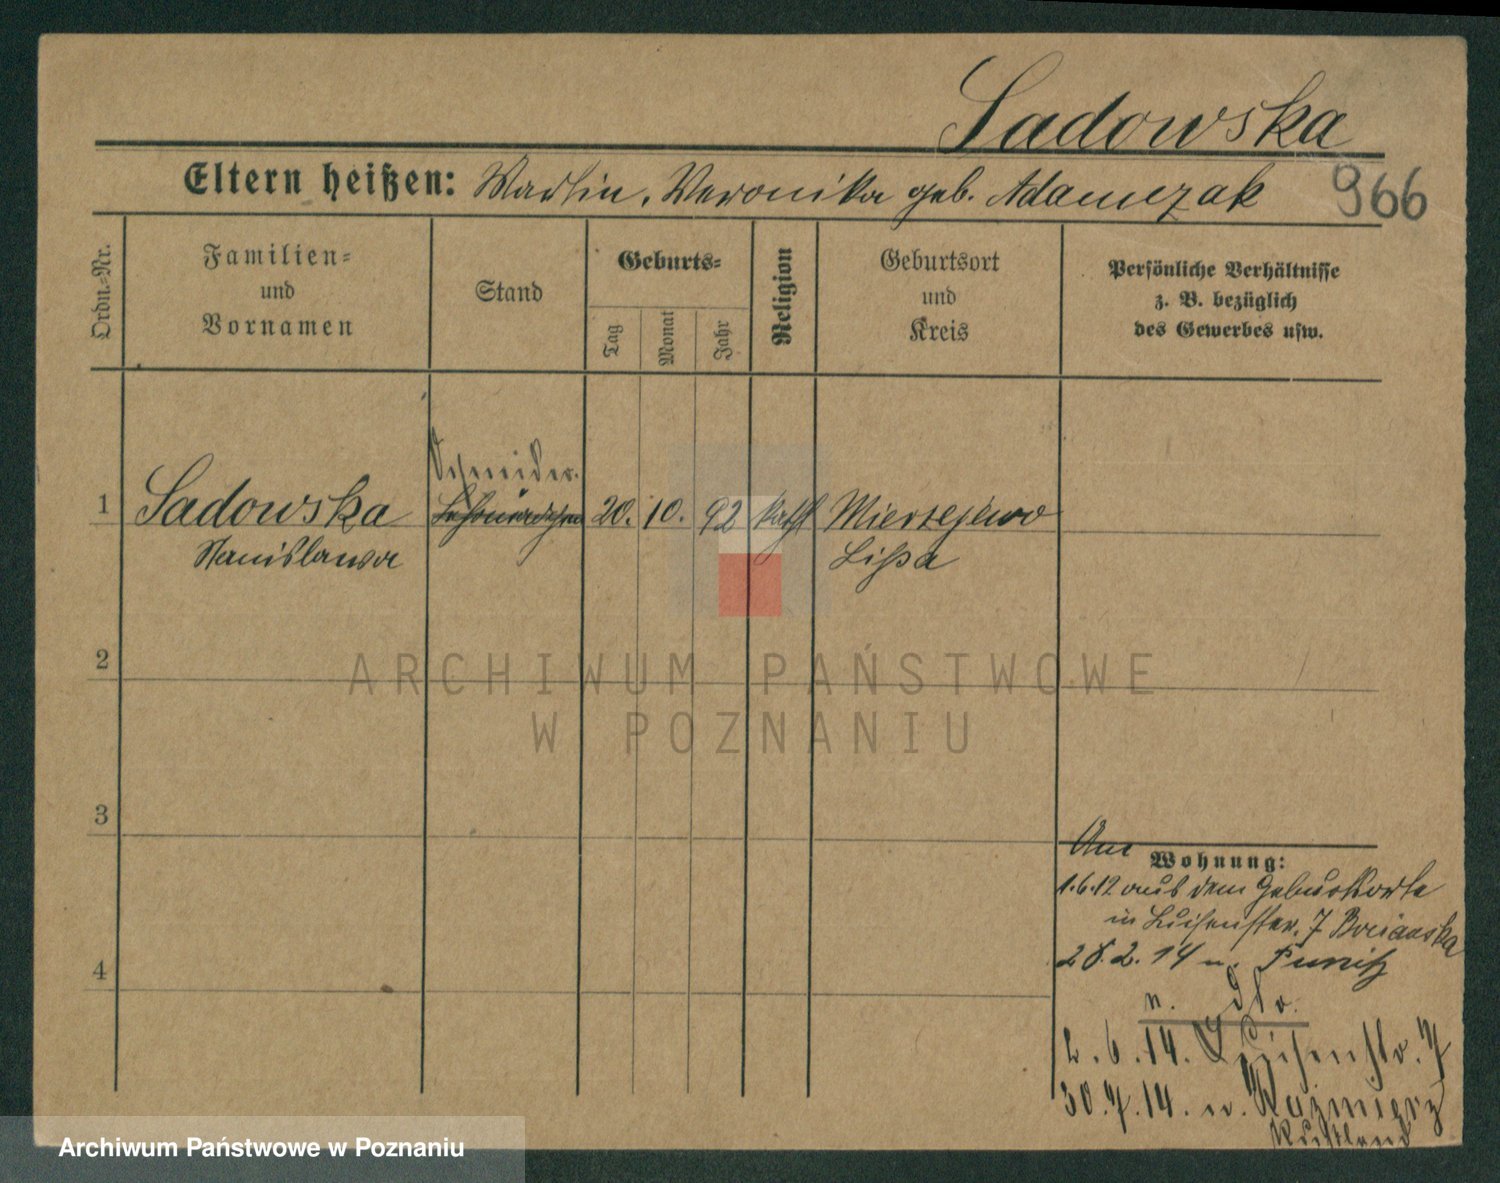 Sadowska
Eltern heißen: Martin, Veronika geb. Adamczak 966
Ordn.=Nr.
Familien=
und
Vornamen
Stand
Geburts=
Tag
Monat
Jahr
Religion
Geburtsort
und
Kreis
Persönliche Verhältnisse
z. B. bezüglich
des Gewerbes usw.
Schneider.
1 Sadowska 20. 10. 92 kath Mierzejewo
Stanislawa Lissa
2
ARCHIWUM PAŃSTWOWE
W POZNANIU
3
Wohnung:
1.6.12 aus dem Geburtsorte
in Luisenstr. 7 Bocianska
28.2.14 n. Punitz
4
n. dto.
2.6.14. Luisenstr. 7
30.7.14. n. Kazmierz
Russland
Archiwum Państwowe w Poznaniu